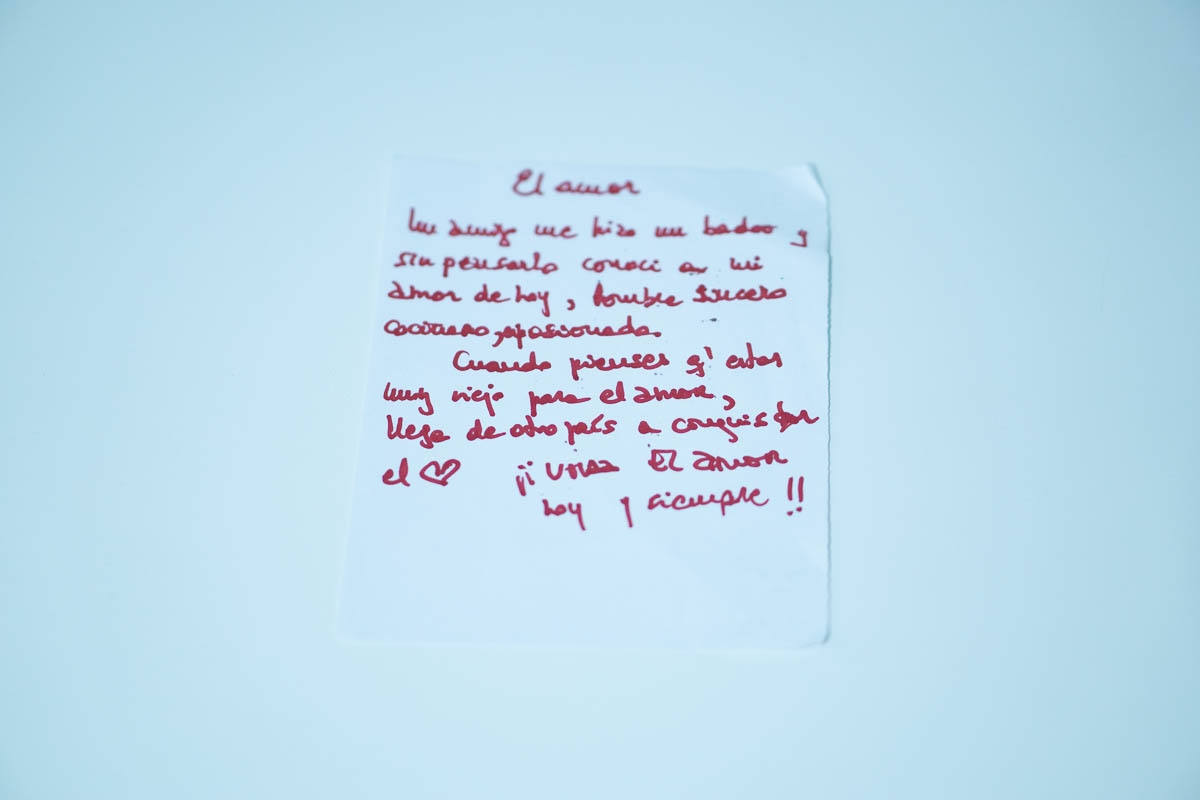 El amor
Un amigo me hizo un badoo y
sin pensarlo conoci a mi
amor de hoy, hombre sincero
cocinero, apasionado.
Cuando pienses q' estas
muy viejo para el amor,
llega de otro país a conquistar
el ♡ ¡¡ Viva El amor
hoy y siempre !!